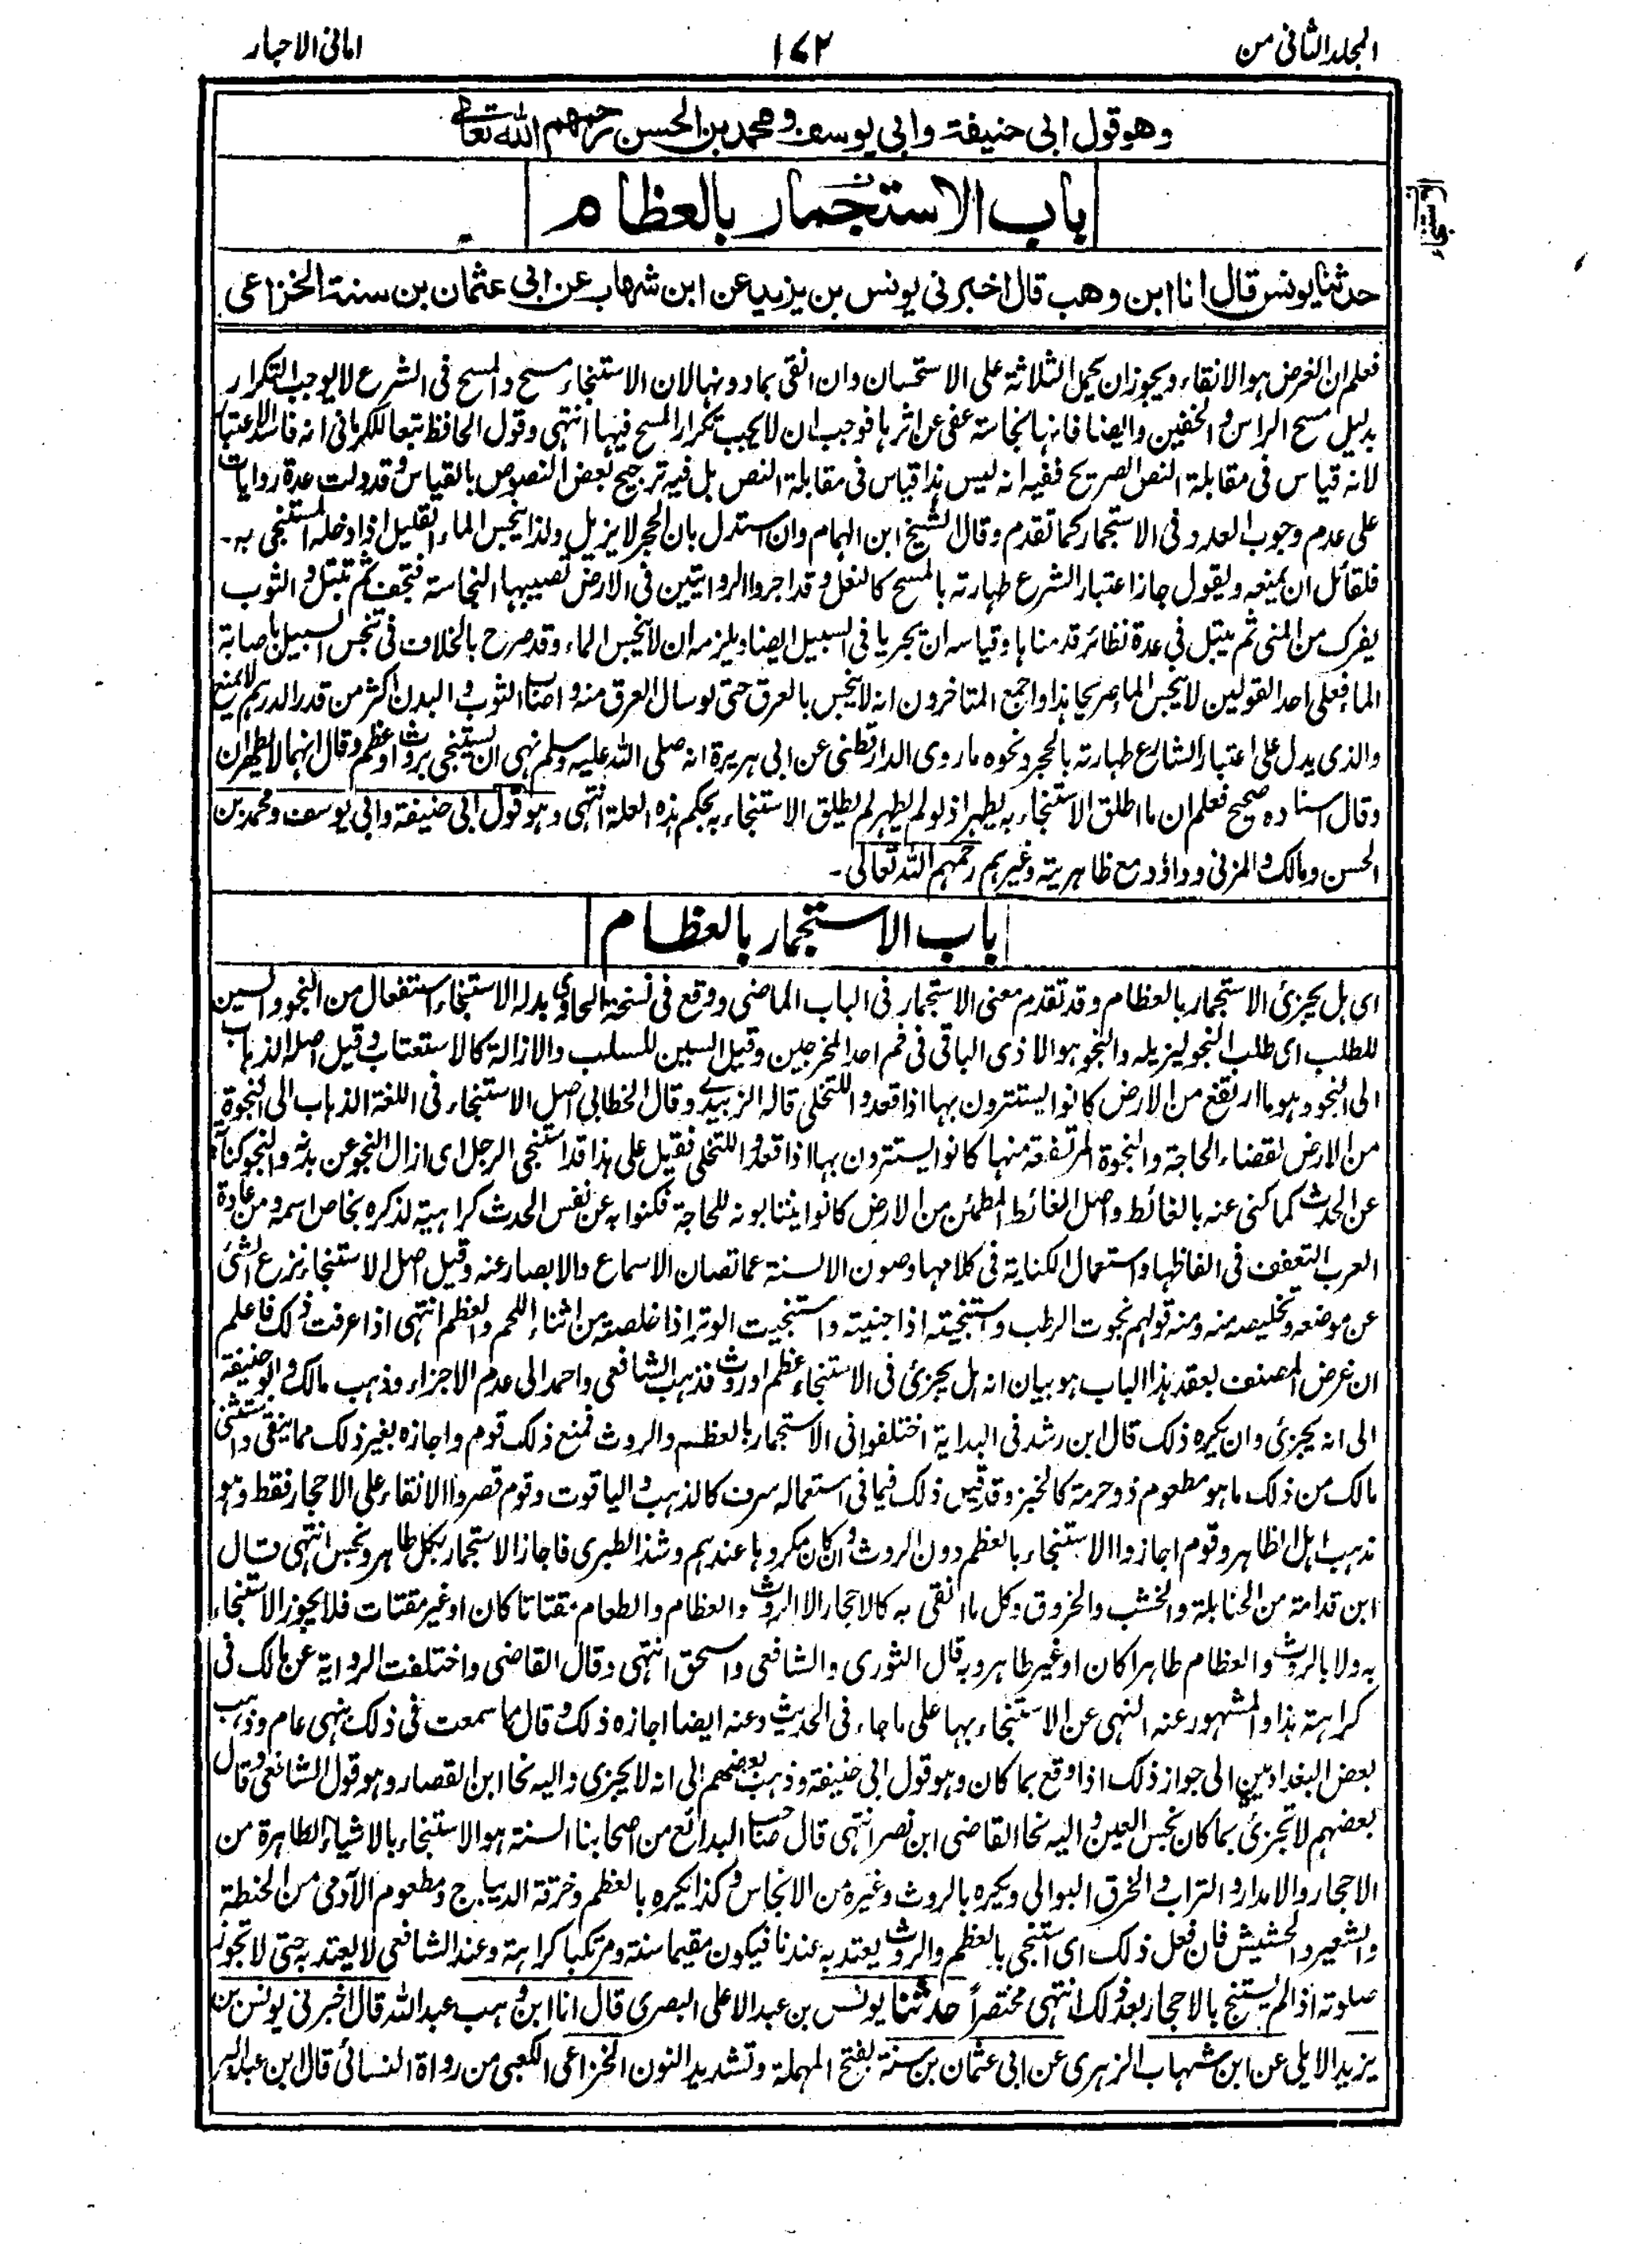 المجلد الثانی من
۱۷۲
امانی الاحبار
وهو قول ابی حنیفة وابی یوسف ومحمد بن الحسن رحمهم الله تعالی
باب الاستجمار بالعظام
حدثنا یونس قال انا ابن وهب قال اخبرنی یونس بن یزید عن ابن شهاب عن ابی عثمان بن سنة الخزاعی
فعلم ان الغرض هو الانقاء ویجوز ان یحمل الثلاثة علی الاستحسان وان انقی بما دونها لان الاستنجاء مسح والمسح فی الشرع لا یوجب التکرار
بدلیل مسح الراس والخفین وایضا فانها نجاسة عفی عن اثرها فوجب ان لا یجب تکرار المسح فیها انتهی وقول الحافظ تبعا للکرمانی انه فاسد الاعتبار
لانه قیاس فی مقابلة النص الصریح ففیه انه لیس هذا قیاس فی مقابلة النص بل فیه ترجیح بعض النصوص بالقیاس وقد دلت عدة روایات
علی عدم وجوب العدد فی الاستجمار کما تقدم وقال الشیخ ابن الهمام وان استدل بان الحجر لا یزیل ولذا ینجس الماء القلیل اذا دخله المستنجی به۔
فلقائل ان یمنعه ویقول جاز اعتبار الشرع طهارته بالمسح کالنعل وقد اجروا الروایتین فی الارض تصیبها النجاسة فتجف ثم تبتل والثوب
یفرک من المنی ثم یبتل فی عدة نظائر قدمناها وقیاسه ان یجریا فی السبیل ایضا ویلزمه ان لا ینجس الماء وقد صرح بالخلاف فی تنجس السبیل باصابة
الماء فعلی احد القولین لا ینجس الماء صریحا هذا واجمع المتاخرون انه لا ینجس بالعرق حتی لو سال العرق منه واصاب الثوب والبدن اکثر من قدر الدرهم لا یمنع
والذی یدل علی اعتبار الشارع طهارته بالحجر ونحوه ما روی الدارقطنی عن ابی هریرة انه صلی الله علیه وسلم نهی ان یستنجی بروث او عظم وقال انهما لا یطهران
وقال اسناده صحیح فعلم ان ما اطلق الاستنجاء به یطهر اذ لو لم یطهر لم یطلق الاستنجاء به بحکم هذه العلة انتهی وهو قول ابی حنیفة وابی یوسف ومحمد بن
الحسن ومالک والمزنی وداؤد مع ظاهریته وغیرهم رحمهم الله تعالی۔
باب الاستجمار بالعظام
ای هل یجزئ الاستجمار بالعظام وقد تقدم معنی الاستجمار فی الباب الماضی ووقع فی نسخة الحاوی بدله الاستنجاء استفعال من النجو والسین
للطلب ای طلب النجو لیزیله والنجو هو الاذی الباقی فی فم احد المخرجین وقیل السین للسلب والازالة کالاستعتاب وقیل اصله الذهاب
الی النجو وهو ما ارتفع من الارض کانوا یستترون بها اذا قعدوا للتخلی قاله الزبیدی وقال الخطابی اصل الاستنجاء فی اللغة الذهاب الی النجوة
من الارض لقضاء الحاجة والنجوة المرتفعة منها کانوا یستترون بها اذا قعدوا للتخلی فقیل علی هذا قد استنجی الرجل ای ازال النجو عن بدنه والنجو کنایة
عن الحدث کما کنی عنه بالغائط واصل الغائط المطمئن من الارض کانوا ینتابونه للحاجة فکنوا به عن نفس الحدث کراهیة لذکره بخاص اسمه ومن عادة
العرب التعفف فی الفاظها واستعمال الکنایة فی کلامها وصون الالسنة عما تصان الاسماع والابصار عنه وقیل اصل الاستنجاء نزع الشئ
عن موضعه وتخلیصه منه ومنه قولهم نجوت الرطب واستنجیته اذا جنیته واستنجیت الوتر اذا خلصته من اثناء اللحم والعظم انتهی اذا عرفت ذلک فاعلم
ان غرض المصنف بعقد هذا الباب هو بیان انه هل یجزئ فی الاستنجاء عظم او روث فذهب الشافعی واحمد الی عدم الاجزاء وذهب مالک وابو حنیفة
الی انه یجزئ وان یکره ذلک قال ابن رشد فی البدایة اختلفوا فی الاستجمار بالعظم والروث فمنع ذلک قوم واجازه بغیر ذلک مما ینقی واستثنی
مالک من ذلک ما هو مطعوم ذو حرمة کالخبز وقد قیس ذلک فیما فی استعماله سرف کالذهب والیاقوت وقوم قصروا الانقاء علی الاحجار فقط وهو
مذهب اهل الظاهر وقوم اجازوا الاستنجاء بالعظم دون الروث وان کان مکروها عندهم وشذ الطبری فاجاز الاستجمار بکل طاهر ونجس انتهی قال
ابن قدامة من الحنابلة والخشب والخروق وکل ما انقی به کالاحجار الا الروث والعظام والطعام مقتاتا کان او غیر مقتات فلا یجوز الاستنجاء
به ولا بالروث والعظام طاهرا کان او غیر طاهر وبه قال الثوری والشافعی واسحق انتهی وقال القاضی واختلفت الروایة عن مالک فی
کراهة هذا والمشهور عنه النهی عن الاستنجاء بها علی ما جاء فی الحدیث وعنه ایضا اجازه ذلک وقال ما سمعت فی ذلک بنهی عام وذهب
بعض البغدادیین الی جواز ذلک اذا وقع بما کان وهو قول ابی حنیفة وذهب بعضهم الی انه لا یجزی والیه نحا ابن القصار وهو قول الشافعی وقال
بعضهم لا تجزئ بما کان نجس العین والیه نحا القاضی ابن نصر انتهی قال صاحب البدائع من اصحابنا السنة هو الاستنجاء بالاشیاء الطاهرة من
الاحجار والامدار والتراب والخرق البوالی ویکره بالروث وغیره من الانجاس وکذا یکره بالعظم وخرقة الدیباج ومطعوم الآدمی من الحنطة
والشعیر والحشیش فان فعل ذلک ای استنجی بالعظم والروث یعتد به عندنا فیکون مقیما سنة ومرتکبا کراهة وعند الشافعی لا یعتد به حتی لا تجوز
صلوته اذا لم یستنج بالاحجار بعد ذلک انتهی مختصراً حدثنا یونس بن عبد الاعلی البصری قال انا ابن وهب عبد الله قال اخبرنی یونس بن
یزید الایلی عن ابن شهاب الزهری عن ابی عثمان بن سنة بفتح المهملة وتشدید النون الخزاعی الکعبی من رواة النسائی قال ابن عبد البر